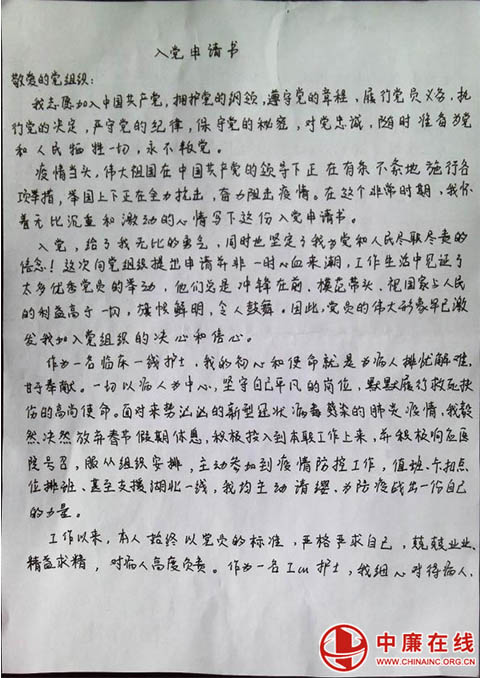 入党申请书
敬爱的党组织:
我志愿加入中国共产党,拥护党的纲领,遵守党的章程,履行党员义务,执
行党的决定,严守党的纪律,保守党的秘密,对党忠诚,随时准备为党
和人民牺牲一切,永不叛党。
疫情当头,伟大祖国在中国共产党的领导下正在有条不紊地施行各
项举措,举国上下正在全力抗击,奋力阻击疫情。在这个非常时期,我怀
着无比沉重和激动的心情写下这份入党申请书。
入党,给了我无比的勇气,同时也坚定了我为党和人民尽职尽责的
信念!这次向党组织提出申请并非一时心血来潮,工作生活中见证了
太多优秀党员的举动,他们总是冲锋在前、模范带头,把国家与人民
的利益高于一切,旗帜鲜明,令人鼓舞。因此,党员的伟大形象早已激
发我加入党组织的决心和信心。
作为一名临床一线护士,我的初心和使命就是为病人排忧解难、
甘于奉献。一切以病人为中心,坚守自己平凡的岗位,默默履行救死扶
伤的高尚使命。面对来势汹汹的新型冠状病毒感染的肺炎疫情,我毅
然决然放弃春节假期休息,积极投入到本职工作上来,并积极响应医
院号召,服从组织安排,主动参加到疫情防控工作,值班、卡扣点
位排班、甚至支援湖北一线,我均主动请缨,为防疫战出一份自己
的力量。
工作以来,本人始终以党员的标准,严格要求自己,兢兢业业、
精益求精,对病人高度负责。作为一名Icu护士,我细心对待病人、
中廉在线
WWW.CHINAINC.ORG.CN